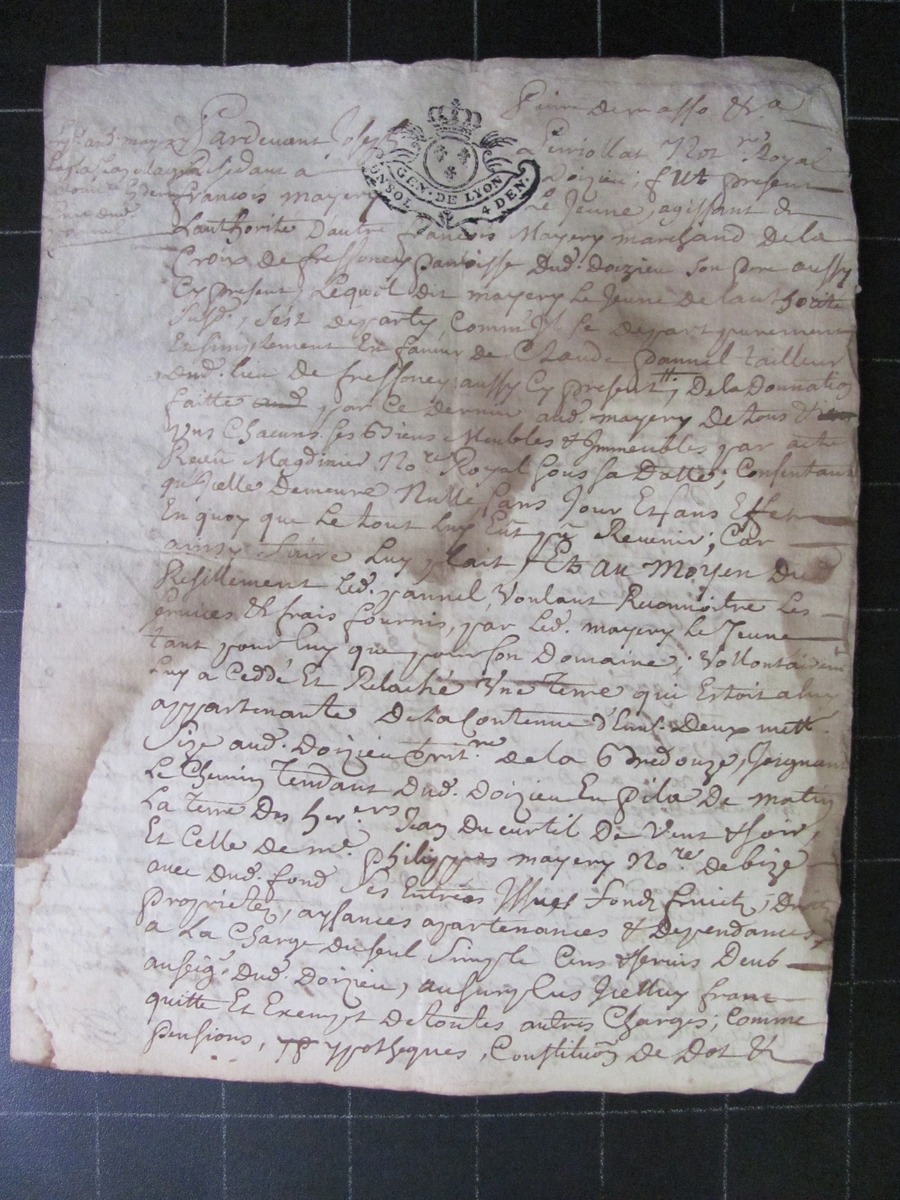 Pardevant Joseph Perrollat Not.re Royal
GEN. DE LYON
UN SOL 4 DEN.
Residant a Doizieu; fut present
francois mayery le Jeune, agissant de
Lauthorite Dautre francois Mayery marchand de la
Croix de fressoney paroisse Dud. Doizieu son pere aussy
Cy present, Lequel dit mayery Le Jeune de lauthorite
Susd., sest departy Comme Il se depart purement
Et simplement En faveur de Claude pannel tailleur
dud. lieu de fressoney aussy Cy present; De la Donnation
faitte par Ce dernier aud. mayery De tous &
uns Chacuns ses Biens Meubles & Immeubles par acte
Receu Magdinier No.re Royal sous sa Datte; Consentant
quelle Demeure Nulle sans Jour Et sans Effet
En quoy que Le tout Luy Eut pû Revenir; Car
ainsy faire Luy plait; Et au Moyen Dud.
Resillement Led. pannel, Voulant Reconnoitre Les
services & frais fournis, par Led. mayery Le Jeune
tant pour Luy que pour son Domaine; Vollontairem.
Luy a Ceddé Et Relaché Une Terre qui Estoit a luy
appartenante De la Contenue d'Env. Deux mett.
Size aud. Doizieu territ.re de la Bredouze, Joignant
Le Chemin Tendant Dud. Doizieu En pila De matin
La terre Des her.ers Jean Ducurtil De Vent & soir,
Et Celle de m.e philippes mayery No.re de bize
avec Dud. fond ses Entrées Issues fondz fruitz, Droitz
Proprietez, aysances apartenances & Dependances
a La Charge Du seul Simple Cens & servis Deub
au seig.r Dud. Doizieu, au surplus Icelluy franc
quitte Et Exempt De toutes autres Charges; Comme
pensions, ypotheques, Constituon De Dot &